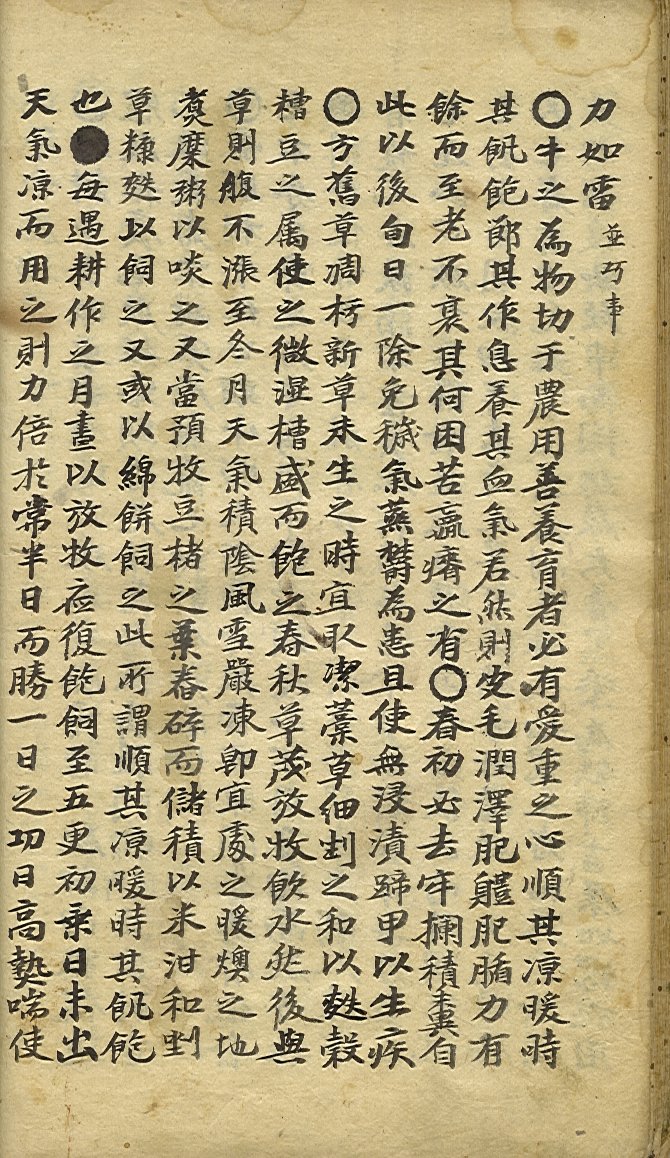 力如雷 並巧事
〇牛之為物切于農用善養育者必有愛重之心順其凉暖時
其飢飽節其作息養其血氣若然則皮毛潤澤肥軆肥腯力有
餘而至老不衰其何困苦羸瘠之有〇春初必去牢攔積糞自
此以後旬日一除免穢氣蒸欝為患且使無浸漬蹄甲以生疾
〇方舊草凋朽新草未生之時宜取潔藁草細剉之和以麩穀
糟豆之属使之微湿槽盛而飽之春秋草茂放牧飲水然後與
草則腹不漲至冬月天氣積陰風雪嚴凍卽宜處之暖燠之地
煑糜粥以啖之又當預牧豆楮之葉舂碎而儲積以米泔和剉
草糠麩以飼之又或以綿餅飼之此所謂順其凉暖時其飢飽
也●每遇耕作之月晝以放牧夜復飽飼至五更初乘日未出
天氣凉而用之則力倍於常半日而勝一日之功日高熱喘使